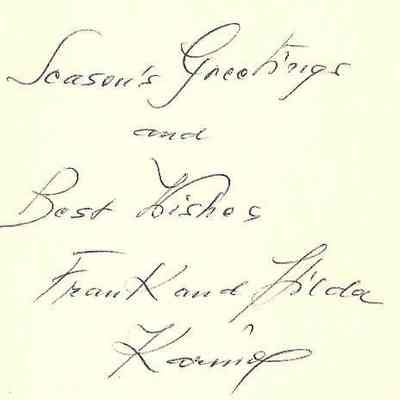 Season's Greetings
and
Best Wishes
Frank and Hilda